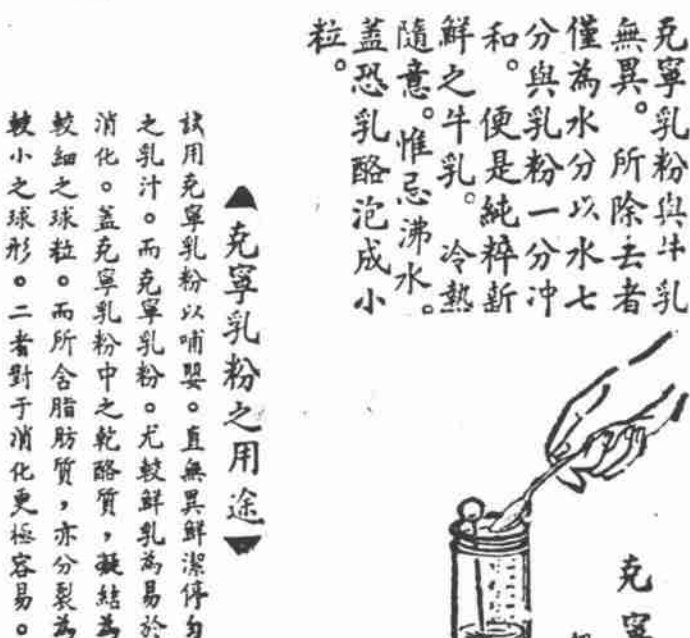 克寧乳粉與牛乳
無異。所除去者
僅為水分以水七
分與乳粉一分沖
和。便是純粹新
鮮之牛乳。冷熱
隨意。惟忌沸水。
蓋恐乳酪泡成小
粒。
克寧
▲克寧乳粉之用途▼
試用克寧乳粉以哺嬰。直無異鮮潔停勻
之乳汁。而克寧乳粉。尤較鮮乳為易於
消化。蓋克寧乳粉中之乾酪質,凝結為
較細之球粒。而所含脂肪質,亦分裂為
較小之球形。二者對于消化更極容易。